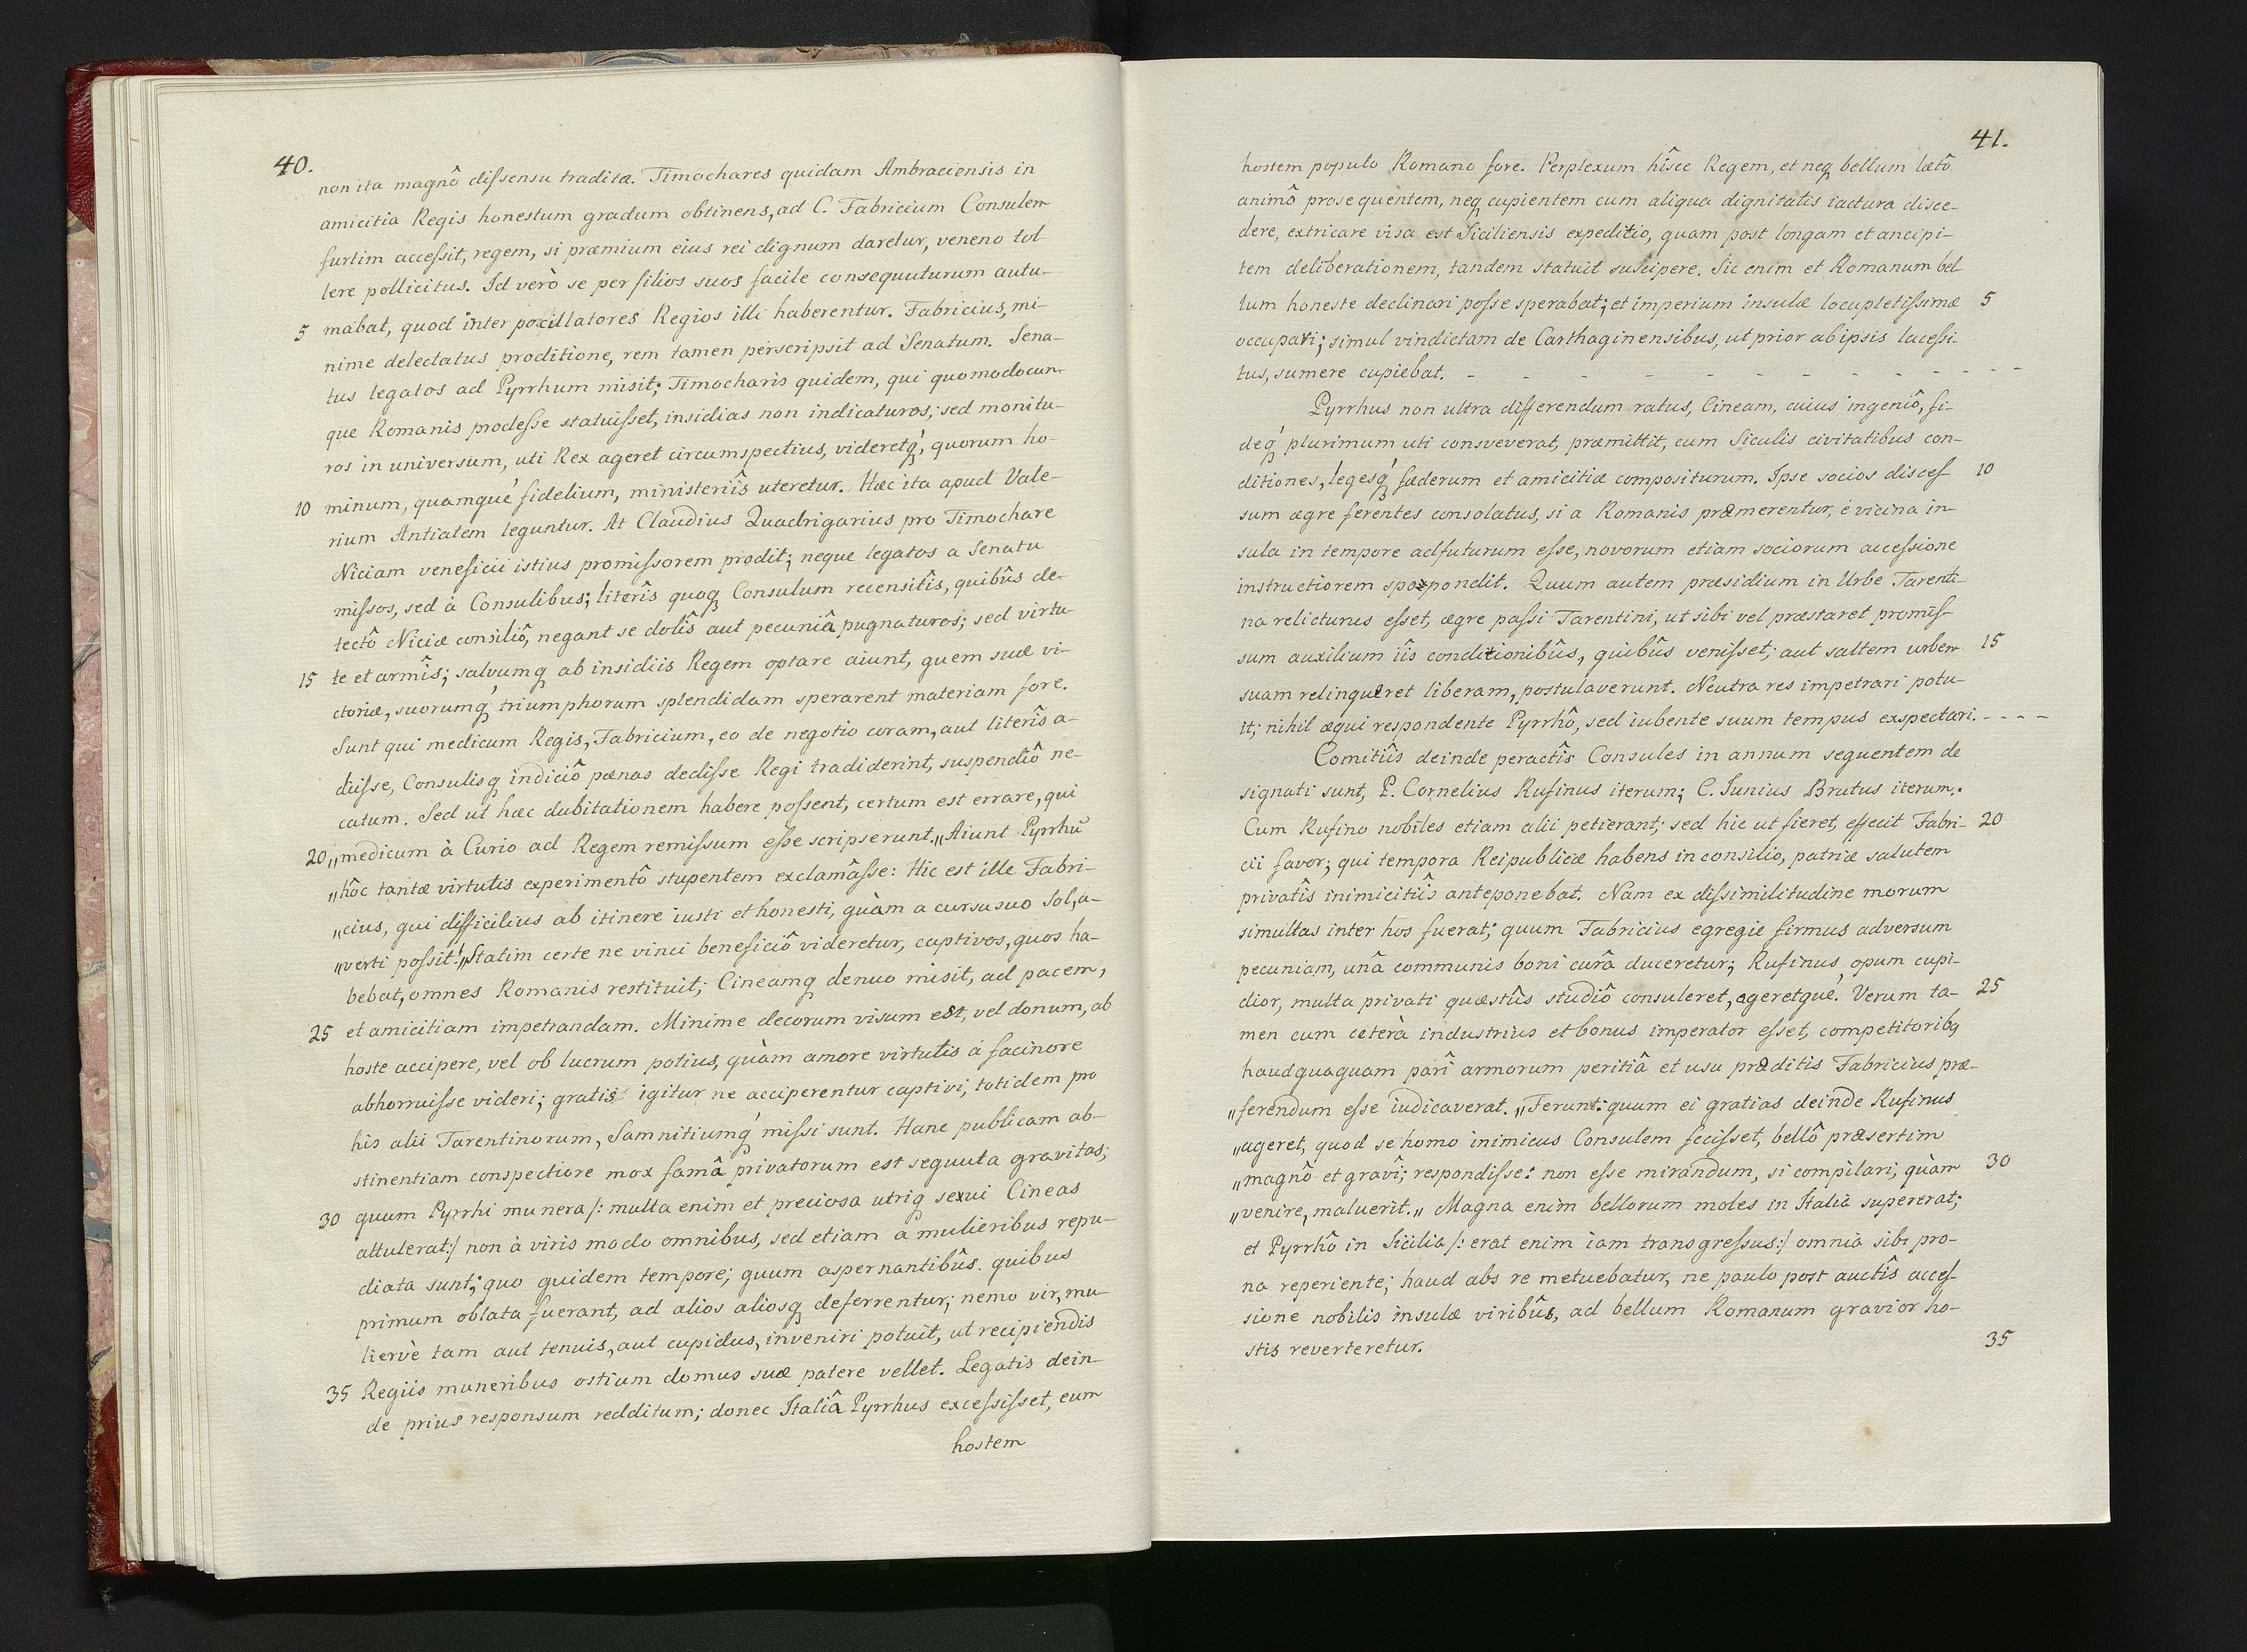 40.
non ita magnô dissensu tradita. Timochares quidam Ambraciensis in
amicitia Regis honestum gradum obtinens, ad C. Fabricium Consulem
furtim accessit, regem, si præmium eius rei dignum daretur, veneno tol
lere pollicitus. Id verò se per filios suos facile consequuturum autu-
5 mabat, quod inter pocillatores Regios illi haberentur. Fabricius, mi-
nime delectatus proditione, rem tamen perscripsit ad Senatum. Sena-
tus legatos ad Pyrrhum misit; Timocharis quidem, qui quomodocun-
que Romanis prodesse statuisset, insidias non indicaturos; sed monitu-
ros in universum, uti Rex ageret circumspectius, videretq́, quorum ho-
10 minum, quamqué fidelium, ministeriîs uteretur. Hæc ita apud Vale-
rium Antiatem leguntur. At Claudius Quadrigarius pro Timochare
Niciam veneficii istius promissorem prodit; neque legatos a Senatu
missos, sed à Consulibus; literîs quoq Consulum recensitîs, quibûs de-
tectô Niciæ consiliô, negant se dolîs aut pecuniâ pugnaturos; sed virtu-
15 te et armîs; salvumq ab insidiis Regem optare aiunt, quem suæ vi-
ctoriæ, suorumq́ triumphorum splendidam sperarent materiam fore.
Sunt qui medicum Regis, Fabricium, eo de negotio coram, aut literîs a-
diisse, Consulisq indiciô pœnas dedisse Regi tradiderint, suspendiô ne-
catum. Sed ut hæc dubitationem habere possent, certum est errare, qui
20 „medicum à Curio ad Regem remissum esse scripserunt. „Aiunt Pyrrhū
„hôc tantæ virtutis experimentô stupentem exclamâsse: Hic est ille Fabri-
„cius, qui difficilius ab itinere iusti et honesti, quàm a cursu suo Sol, a-
„verti possit! „Statim certe ne vinci beneficiô videretur, captivos, quos ha-
bebat, omnes Romanis restituit; Cineamq denuo misit, ad pacem,
25 et amicitiam impetrandam. Minime decorum visum est, vel donum, ab
hoste accipere, vel ob lucrum potius, quàm amore virtutis à facinore
abhorruisse videri; gratis igitur ne acciperentur captivi, totidem pro
his alii Tarentinorum, Samnitiumq́ missi sunt. Hanc publicam ab-
stinentiam conspectiore mox famâ privatorum est sequuta gravitas;
30 quum Pyrrhi munera /: multa enim et preciosa utriq sexui Cineas
attulerat :/ non à viris modo omnibus, sed etiam a mulieribus repu-
diata sunt; quo quidem tempore; quum aspernantibûs quibus
primum oblata fuerant, ad alios aliosq deferrentur; nemo vir, mu-
lierve tam aut tenuis, aut cupidus, inveniri potuit, ut recipiendis
35 Regiis muneribus ostium domus suæ patere vellet. Legatis dein-
de prius responsum redditum; donec Italiâ Pyrrhus excessisset, eum
hostem
41.
hostem populo Romano fore. Perplexum hîsce Regem, et neq bellum lætô
animô prosequentem, neq cupientem cum aliqua dignitatis iactura disce-
dere, extricare visa est Siciliensis expeditio, quam post longam et ancipi-
tem deliberationem, tandem statuit suscipere. Sic enim et Romanum bel
lum honeste declinari posse sperabat; et imperium insulæ locupletissimæ 5
occupari; simul vindictam de Carthaginensibus, ut prior ab ipsis lacessi-
tus, sumere cupiebat. - - - - - - - - - - - - -
Pyrrhus non ultra differendum ratus, Cineam, cuius ingeniô, fi-
deq́ plurimum uti consveverat, præmittit, cum Siculis civitatibus con-
ditiones, legesq́ fœderum et amicitiæ compositurum. Ipse socios disces 10
sum ægre ferentes consolatus, si a Romanis præmerentur, è vicina in-
sula in tempore adfuturum esse, novorum etiam sociorum accessione
instructiorem spopondit. Quum autem præsidium in Urbe Tarenti-
na relicturus esset, ægre passi Tarentini, ut sibi vel præstaret promis-
sum auxilium iîs conditionibûs, quibûs venisset; aut saltem urbem 15
suam relinqueret liberam, postulaverunt. Neutra res impetrari potu-
it; nihil æqui respondente Pyrrhô, sed iubente suum tempus exspectari. - - - -
Comitiîs deinde peractîs Consules in annum sequentem de
signati sunt, P. Cornelius Rufinus iterum; C. Iunius Brutus iterum.
Cum Rufino nobiles etiam alii petierant; sed hic ut fieret, effecit Fabri- 20
cii favor; qui tempora Reipublicæ habens in consilio, patriæ salutem
privatîs inimicitiîs anteponebat. Nam ex dissimilitudine morum
simultas inter hos fuerat; quum Fabricius egregie firmus adversum
pecuniam, unâ communis boni curâ duceretur; Rufinus, opum cupi-
dior, multa privati quæstûs studiô consuleret, ageretqué. Verum ta- 25
men cum ceterà industrius et bonus imperator esset, competitoribq
haudquaquam parî armorum peritiâ et usu præditis Fabricius præ-
„ferendum esse iudicaverat. „Ferunt: quum ei gratias deinde Rufinus
„ageret, quod se homo inimicus Consulem fecisset, bellô præsertim
„magnô et gravî; respondisse: non esse mirandum, si compilari, quàm 30
„venire, maluerit.„ Magna enim bellorum moles in Italiâ supererat;
et Pyrrhô in Sicilia /: erat enim iam transgressus :/ omnia sibi pro-
na reperiente; haud abs re metuebatur, ne paulo post auctîs acces-
sione nobilis insulæ viribûs, ad bellum Romanum gravior ho-
stis reverteretur. 35